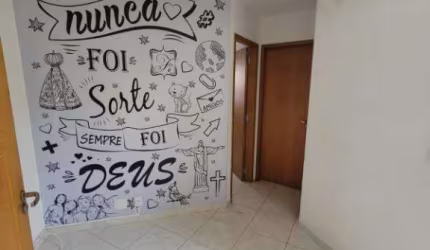 nunca
FOI
Sorte
SEMPRE FOI
DEUS